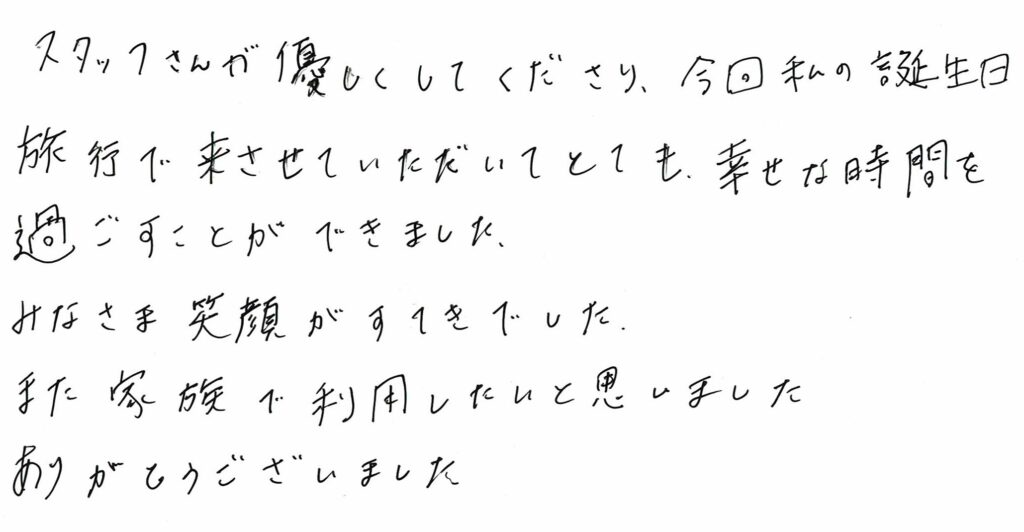 スタッフさんが優しくしてくださり、今回私の誕生日
旅行で来させていただいてとても、幸せな時間を
過ごすことができました、
みなさま笑顔がすてきでした.
また家族で利用したいと思いました
ありがとうございました